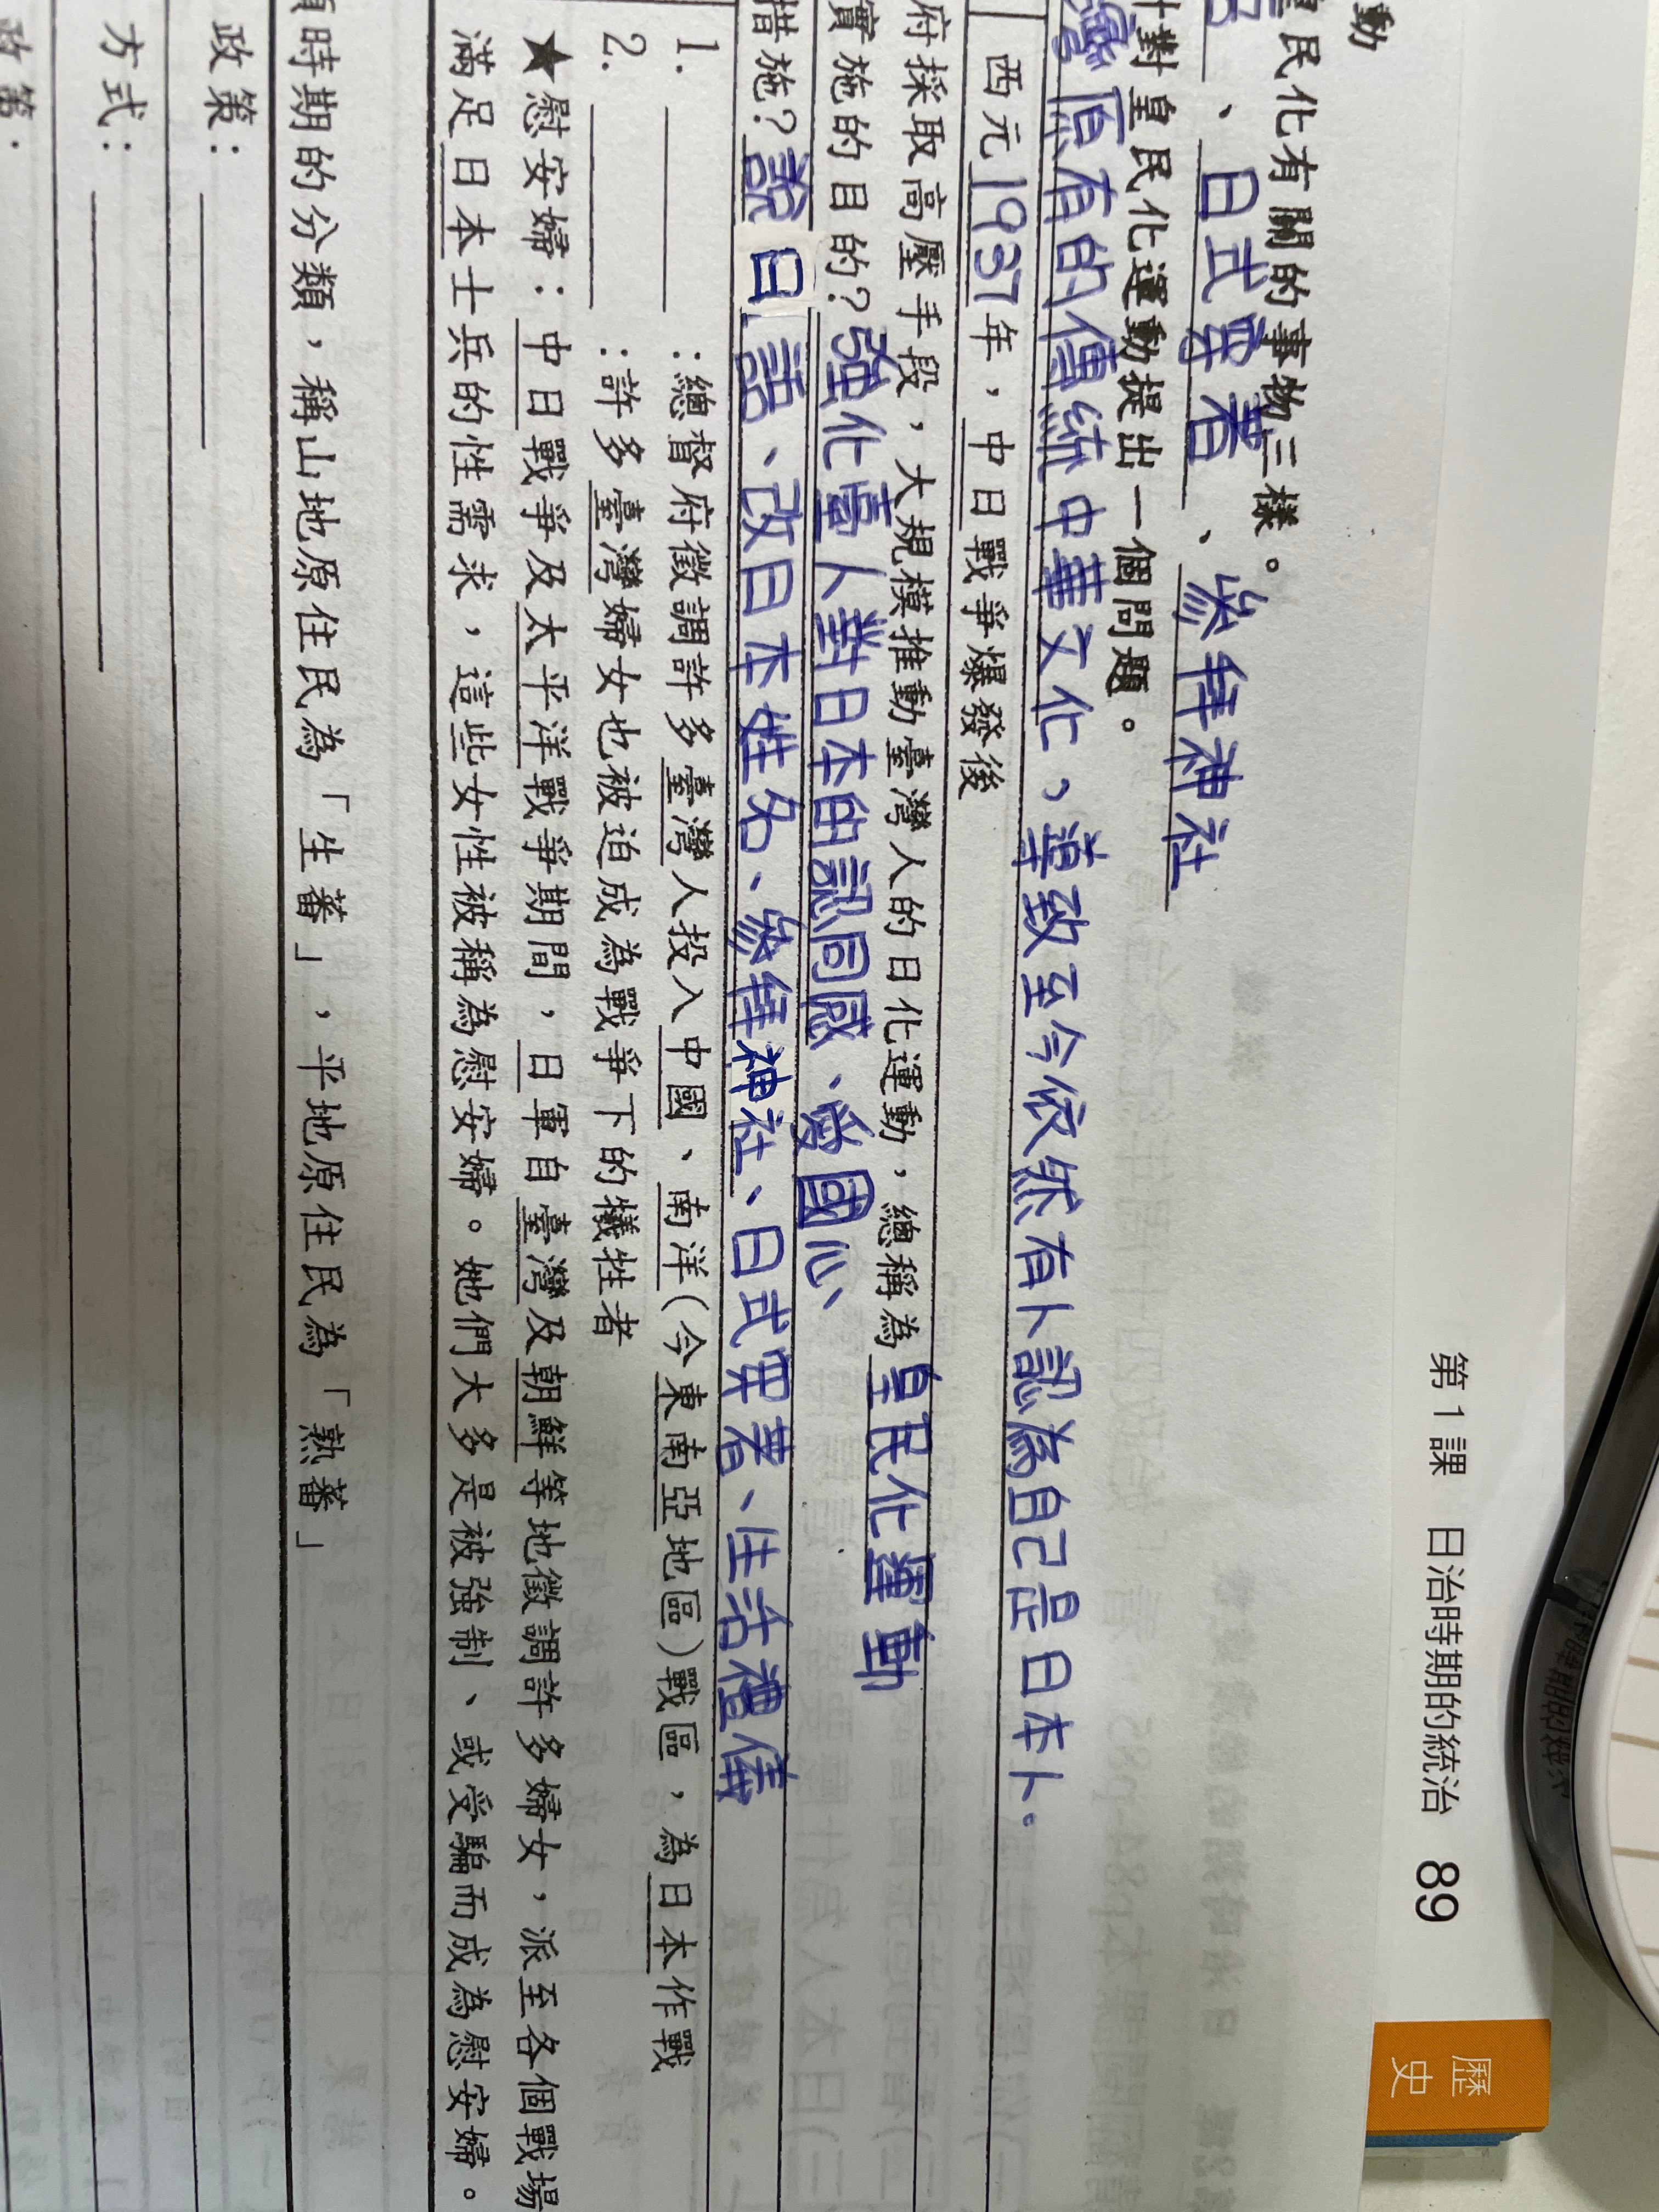 第1課 日治時期的統治 89
歷史
動
皇民化有關的事物三樣。
、日式穿著、參拜神社
針對皇民化運動提出一個問題。
灣原有的傳統中華文化，導致至今依然有人認為自己是日本人。
西元1937年，中日戰爭爆發後
府採取高壓手段，大規模推動臺灣人的日化運動，總稱為皇民化運動
實施的目的?強化臺人對日本的認同感、愛國心、
措施?說日語、改日本姓名、參拜神社、日式穿著、生活禮儀
1. :總督府徵調許多臺灣人投入中國、南洋(今東南亞地區)戰區，為日本作戰
2. :許多臺灣婦女也被迫成為戰爭下的犧牲者
★慰安婦：中日戰爭及太平洋戰爭期間，日軍自臺灣及朝鮮等地徵調許多婦女，派至各個戰場
滿足日本士兵的性需求，這些女性被稱為慰安婦。她們大多是被強制、或受騙而成為慰安婦。
時期的分類，稱山地原住民為「生蕃」，平地原住民為「熟蕃」
政策：
方式：
政策：